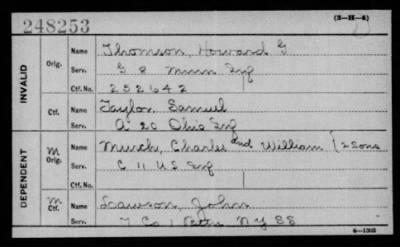 248253
(3-H-4)
INVALID
Orig.
Name Thomson, Howard G
Serv. G 8 Minn Inf
Ctf. No. 252642
Ctf.
Name Taylor, Samuel
Serv. A 20 Ohio Inf
DEPENDENT
M
Orig.
Name Murch, Charles and William (2 Sons
Serv. C 11 US Inf
Ctf. No.
M
Ctf.
Name Lawson, John
Serv. 7 Co 1 N.Y SS
6-1313